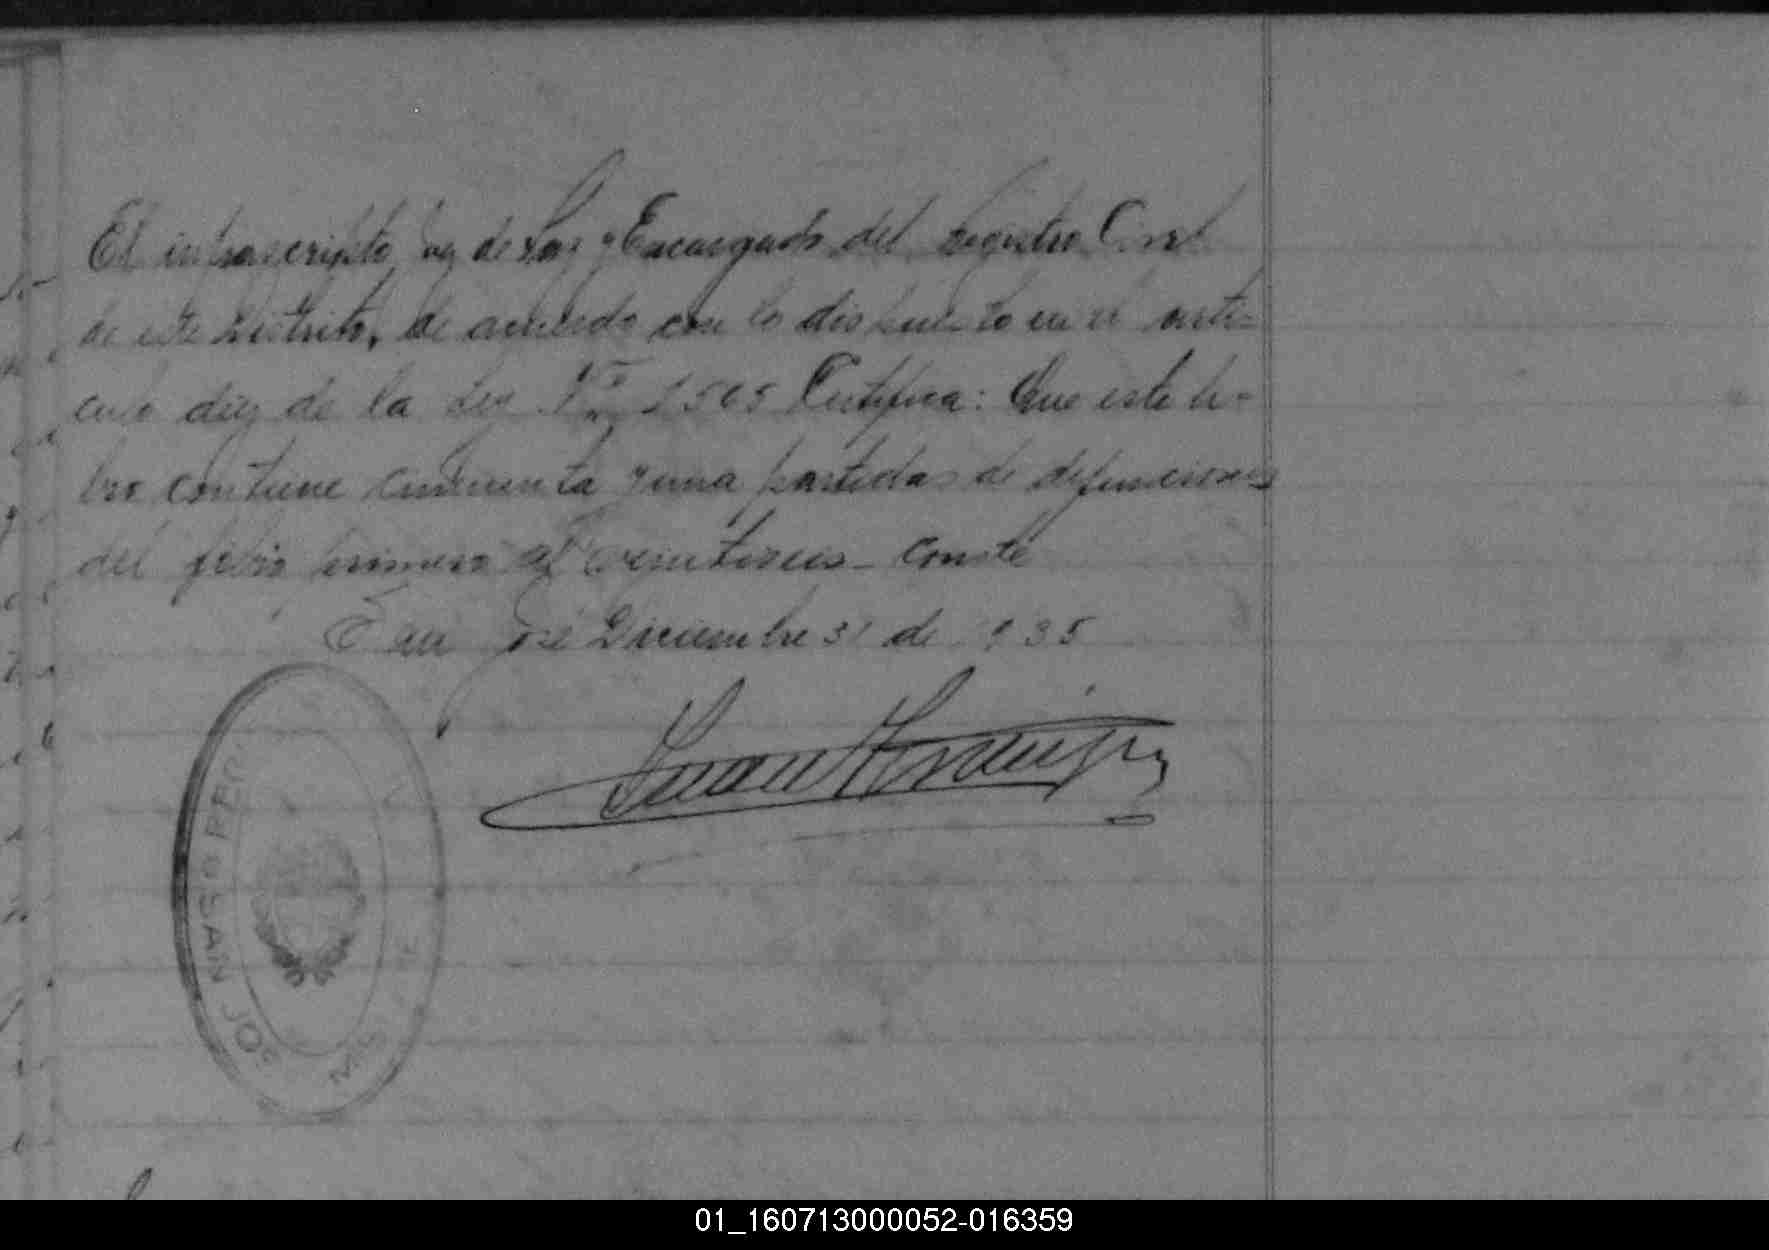 El infrascripto Juez de Paz y Encargado del Registro Civil
de este Distrito, de acuerdo con lo dispuesto en el arti-
culo diez de la Ley Nro 1565 Certifica: Que este li-
bro contiene cincuenta y una partidas de defunciones
del folio primero al veintiseis - Conste
San José Diciembre 31 de 1935
Juan
SAN JOSE
01_160713000052-016359